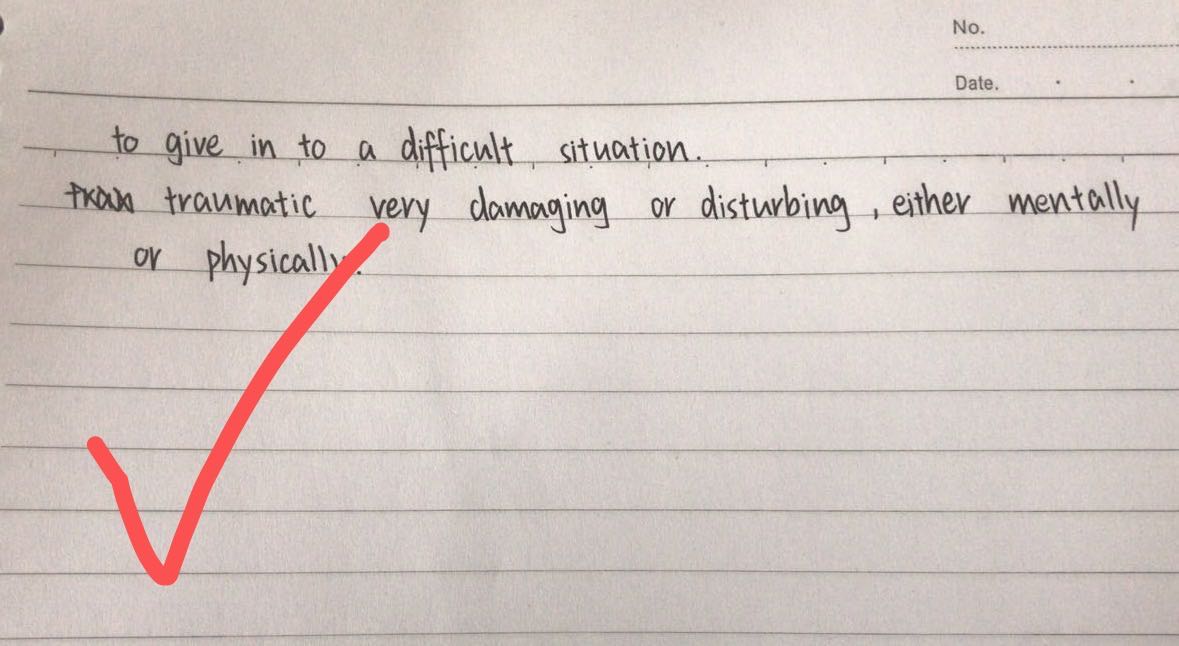 No.
Date.
to give in to a difficult situation.
traumatic very damaging or disturbing, either mentally
or physically.